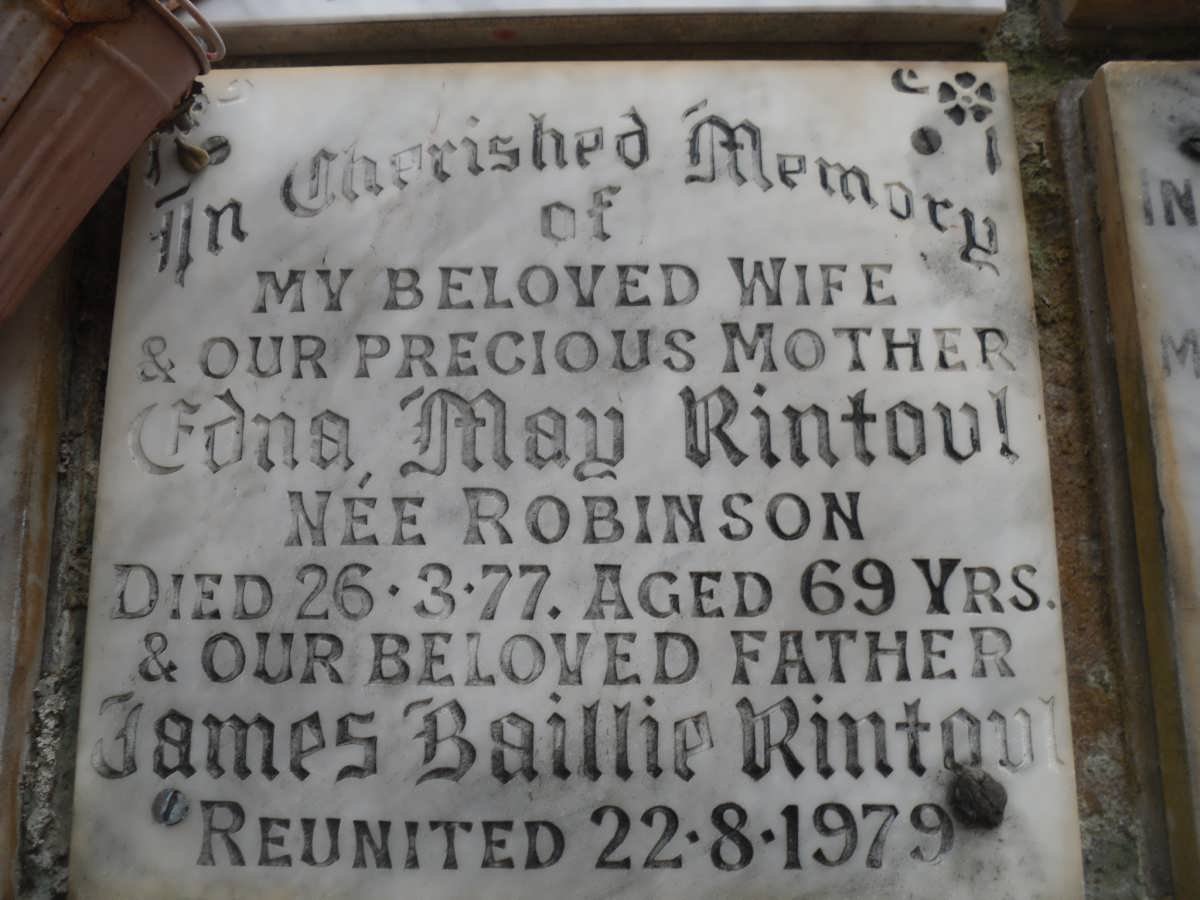 In Cherished Memory
of
MY BELOVED WIFE
& OUR PRECIOUS MOTHER
Edna May Rintoul
NÉE ROBINSON
DIED 26·3·77. AGED 69 YRS.
& OUR BELOVED FATHER
James Baillie Rintoul
REUNITED 22·8·1979
IN
M